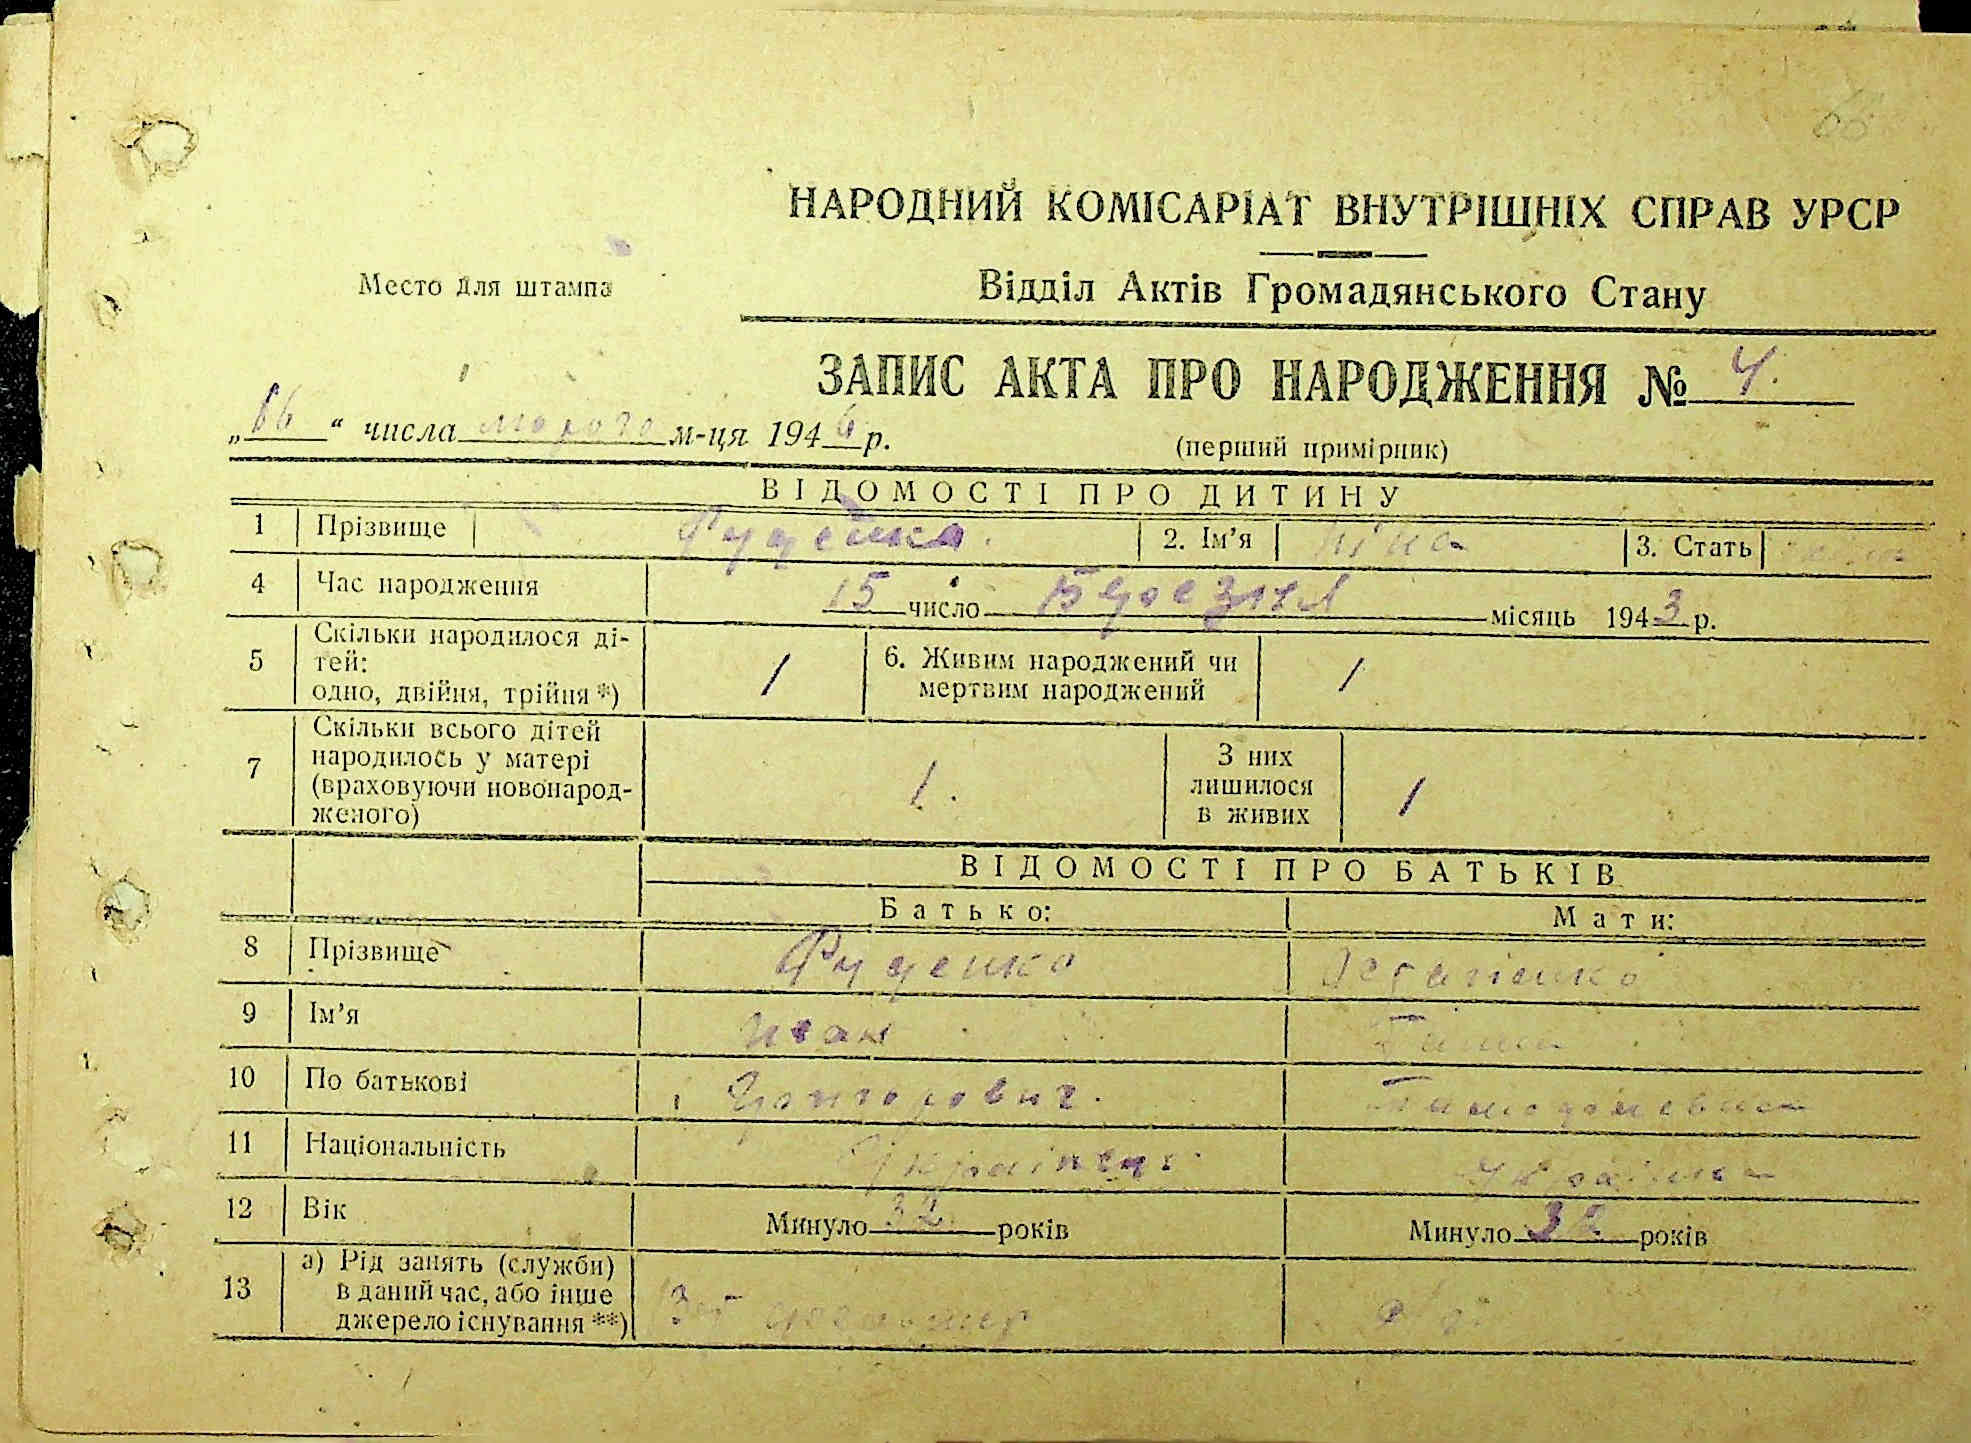 68
НАРОДНИЙ КОМІСАРІАТ ВНУТРІШНІХ СПРАВ УРСР
Место для штампа
Відділ Актів Громадянського Стану
ЗАПИС АКТА ПРО НАРОДЖЕННЯ № 4.
„ “ числа м-ця 194 р.
(перший примірник)
ВІДОМОСТІ ПРО ДИТИНУ
1 Прізвище Руденко. 2. Ім’я Ніна 3. Стать
4 Час народження 15 число Березня місяць 1943 р.
5 Скільки народилося ді-
тей:
одно, двійня, трійня *) 1 6. Живим народжений чи
мертвим народжений 1
7 Скільки всього дітей
народилось у матері
(враховуючи новонарод-
женого) 1. З них
лишилося
в живих 1
ВІДОМОСТІ ПРО БАТЬКІВ
Батько: Мати:
8 Прізвище Руденко Остапенко
9 Ім’я Иван
10 По батькові Григорович.
11 Національність Українец. Українка
12 Вік Минуло 32 років Минуло 32 років
13 а) Рід занять (служби)
в даний час, або інше
джерело існування **)